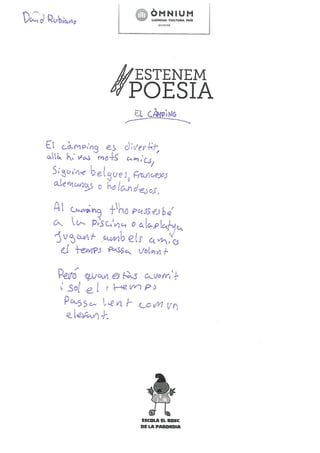 David Rubiano
ÒMNIUM
LLENGUA CULTURA PAÍS
ESTENEM
POESIA
EL CÀMPING
El càmping es divertit,
allà hi fas mots amics,
Siguin belgues, francesos
alemanys o holandesos.
Al camping t'ho passes bé
a la piscina o a la platja
Jugant amb els amics
el temps passa volant
Però quan estàs avorrit
i sol el temps
Passa lent com un
elefant.
ESCOLA EL BOSC
DE LA PABORDIA